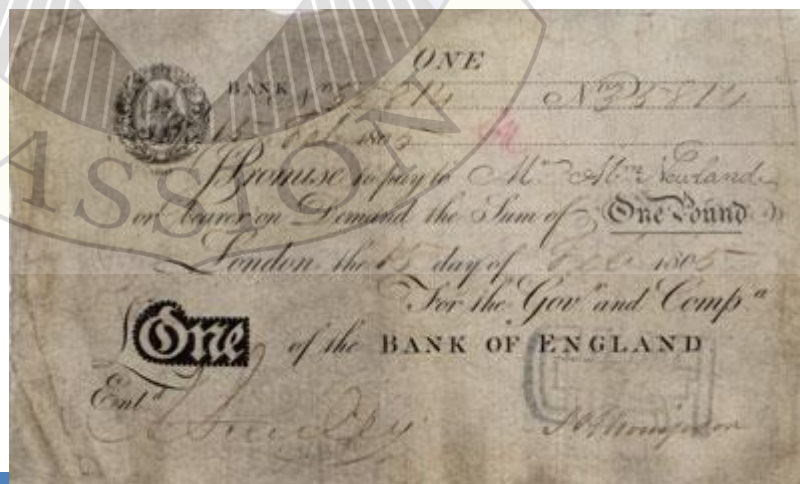 ONE
BANK
15 Feb 1805
I Promise to pay to Mr. Abm. Newland
or bearer on Demand the Sum of One Pound
London, the 15 day of Feb 1805
For the Govr. and Compa.
One of the BANK OF ENGLAND
Entd.
ASSION